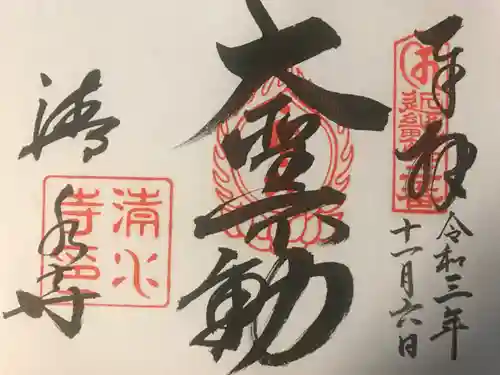 奉拝
令和三年
十一月六日
大聖不動
清水寺
清水寺印